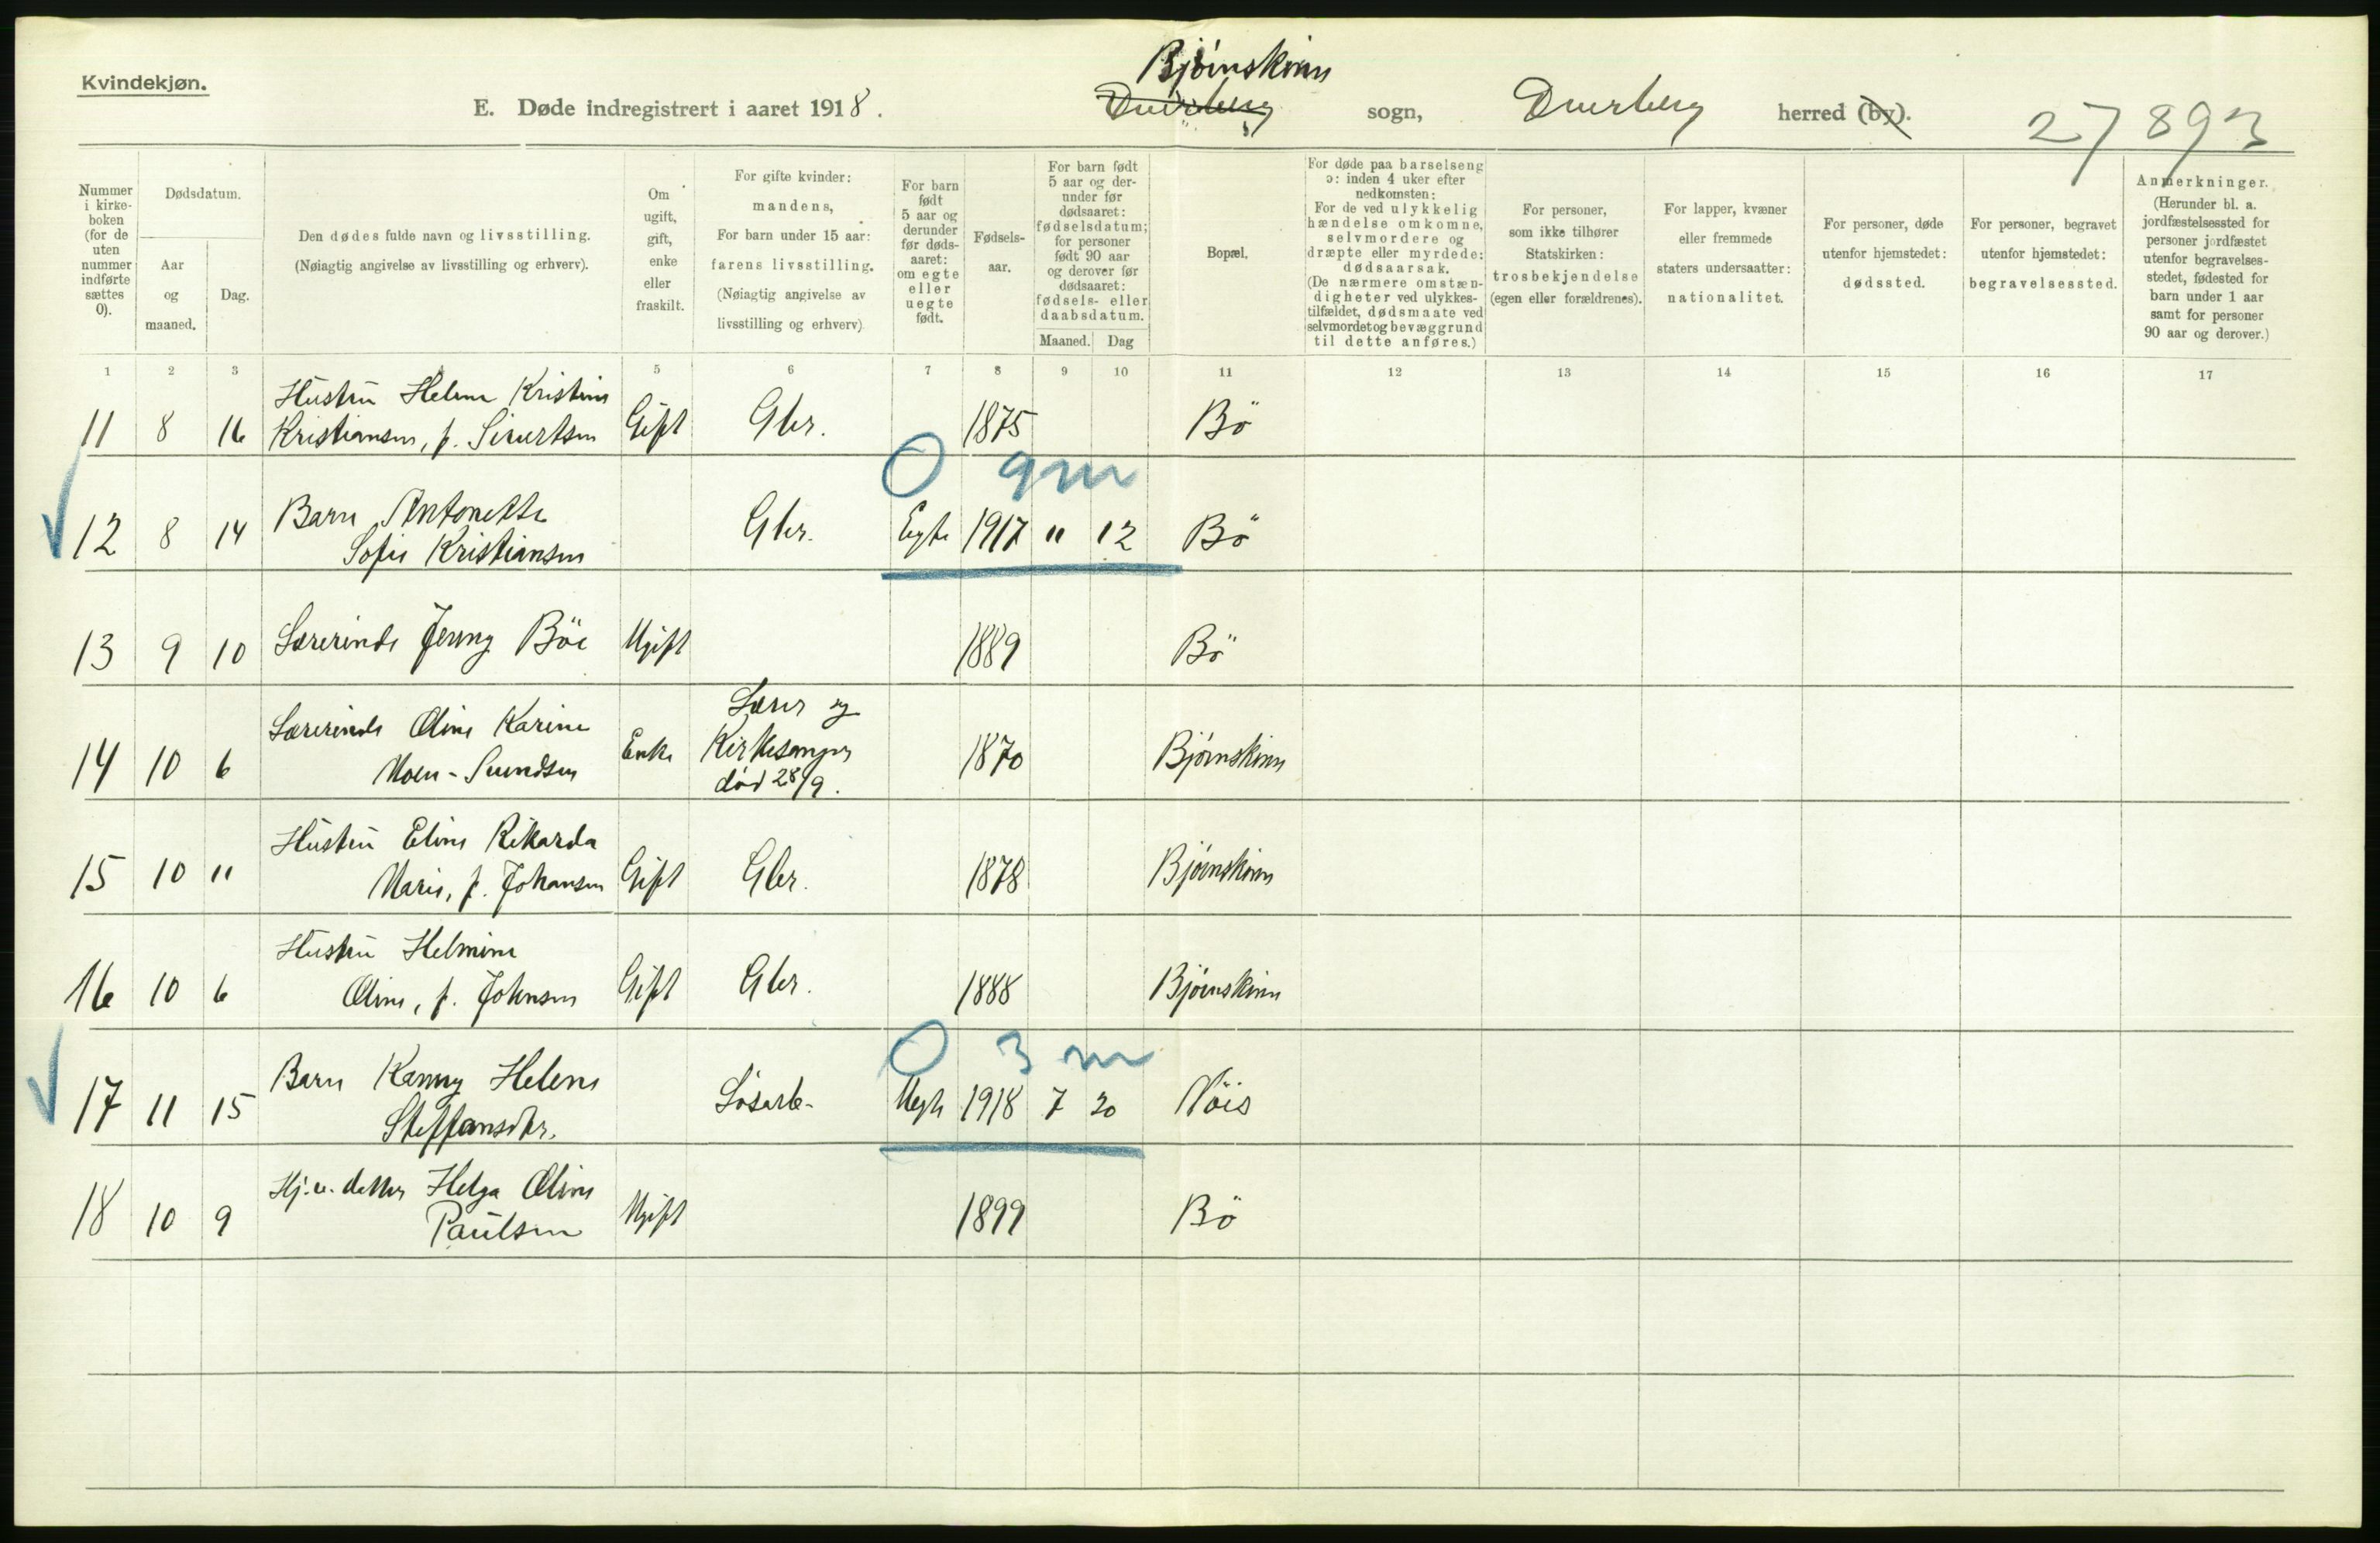 Kvindekjøn.
E. Døde indregistrert i aaret 1918.
Bjørnskinn
Dverberg sogn, Dverberg herred (by).
27 893
Nummer i kirke-boken (for de uten nummer indførte sættes 0).
Dødsdatum.
Aar og maaned.
Dag.
Den dødes fulde navn og livsstilling.
(Nøiagtig angivelse av livsstilling og erhverv).
Om ugift, gift, enke eller fraskilt.
For gifte kvinder: mandens,
For barn under 15 aar: farens livsstilling.
(Nøiagtig angivelse av livsstilling og erhverv)
For barn født 5 aar og derunder før døds-aaret: om egte eller uegte født.
Fødsels-aar.
For barn født 5 aar og der-under før dødsaaret: fødselsdatum; for personer født 90 aar og derover før dødsaaret: fødsels- eller daabsdatum.
Maaned.
Dag
Bopæl.
For døde paa barselseng ɔ: inden 4 uker efter nedkomsten:
For de ved ulykkelig hændelse omkomne, selvmordere og dræpte eller myrdede: dødsaarsak.
(De nærmere omstæn-digheter ved ulykkes-tilfældet, dødsmaate ved selvmordet og bevæggrund til dette anføres.)
For personer, som ikke tilhører Statskirken: trosbekjendelse (egen eller forældrenes).
For lapper, kvæner eller fremmede staters undersaatter: nationalitet.
For personer, døde utenfor hjemstedet: dødssted.
For personer, begravet utenfor hjemstedet: begravelsessted.
Anmerkninger.
(Herunder bl. a. jordfæstelsessted for personer jordfæstet utenfor begravelses-stedet, fødested for barn under 1 aar samt for personer 90 aar og derover.)
1 2 3 5 6 7 8 9 10 11 12 13 14 15 16 17
Hustru Helene Kristine
11 8 16 Kristiansen, f. Sivertsen Gift Gbr. 1875 Bö
0 9 m
12 8 14 Barn Antonette Gbr. Egte 1917 11 12 Bö
Sofie Kristiansen
13 9 10 Lærerinde Jenny Böe Ugift 1889 Bö
Lærer og
14 10 6 Lærerinde Oline Karine Enke Kirkesanger 1870 Bjørnskinn
Moen - Svendsen død 28/9.
Hustru Eline Rikarda
15 10 11 Marie, f. Johansen Gift Gbr. 1878 Bjørnskinn
Hustru Helmine
16 10 6 Oline, f. Johnsen Gift Gbr. 1888 Bjørnskinn
0 3 m
17 11 15 Barn Kanny Helene Løsarb- Uegte 1918 7 20 Nöis
Steffansdtr.
18 10 9 Hj.v. datter Helga Oline Ugift 1899 Bö
Paulsen